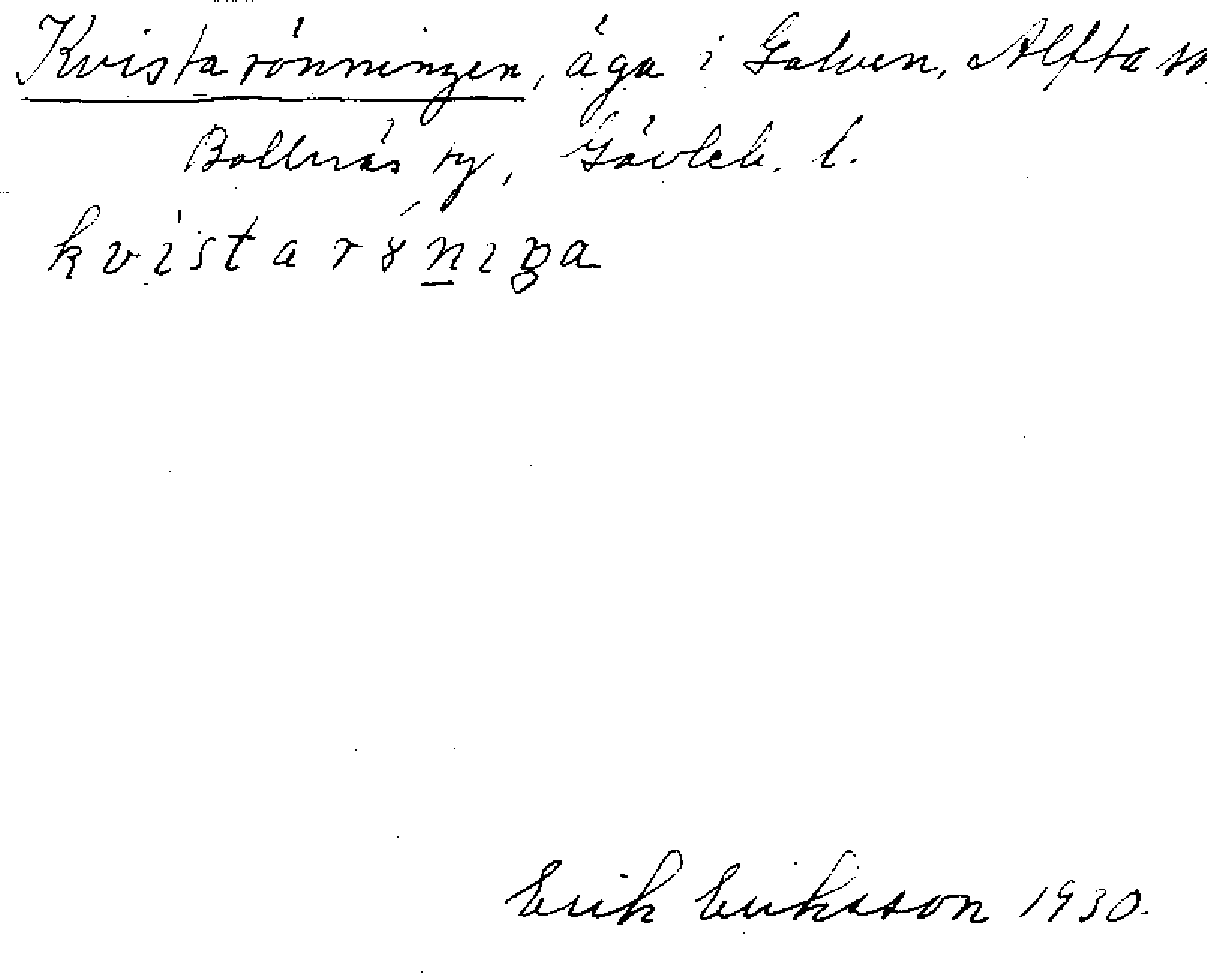 Kvistarönningen, äga i Galven, Alfta sn
Bollnäs tg, Gävleb. l.
kvistarö́niŋa
Erik Eriksson 1930.